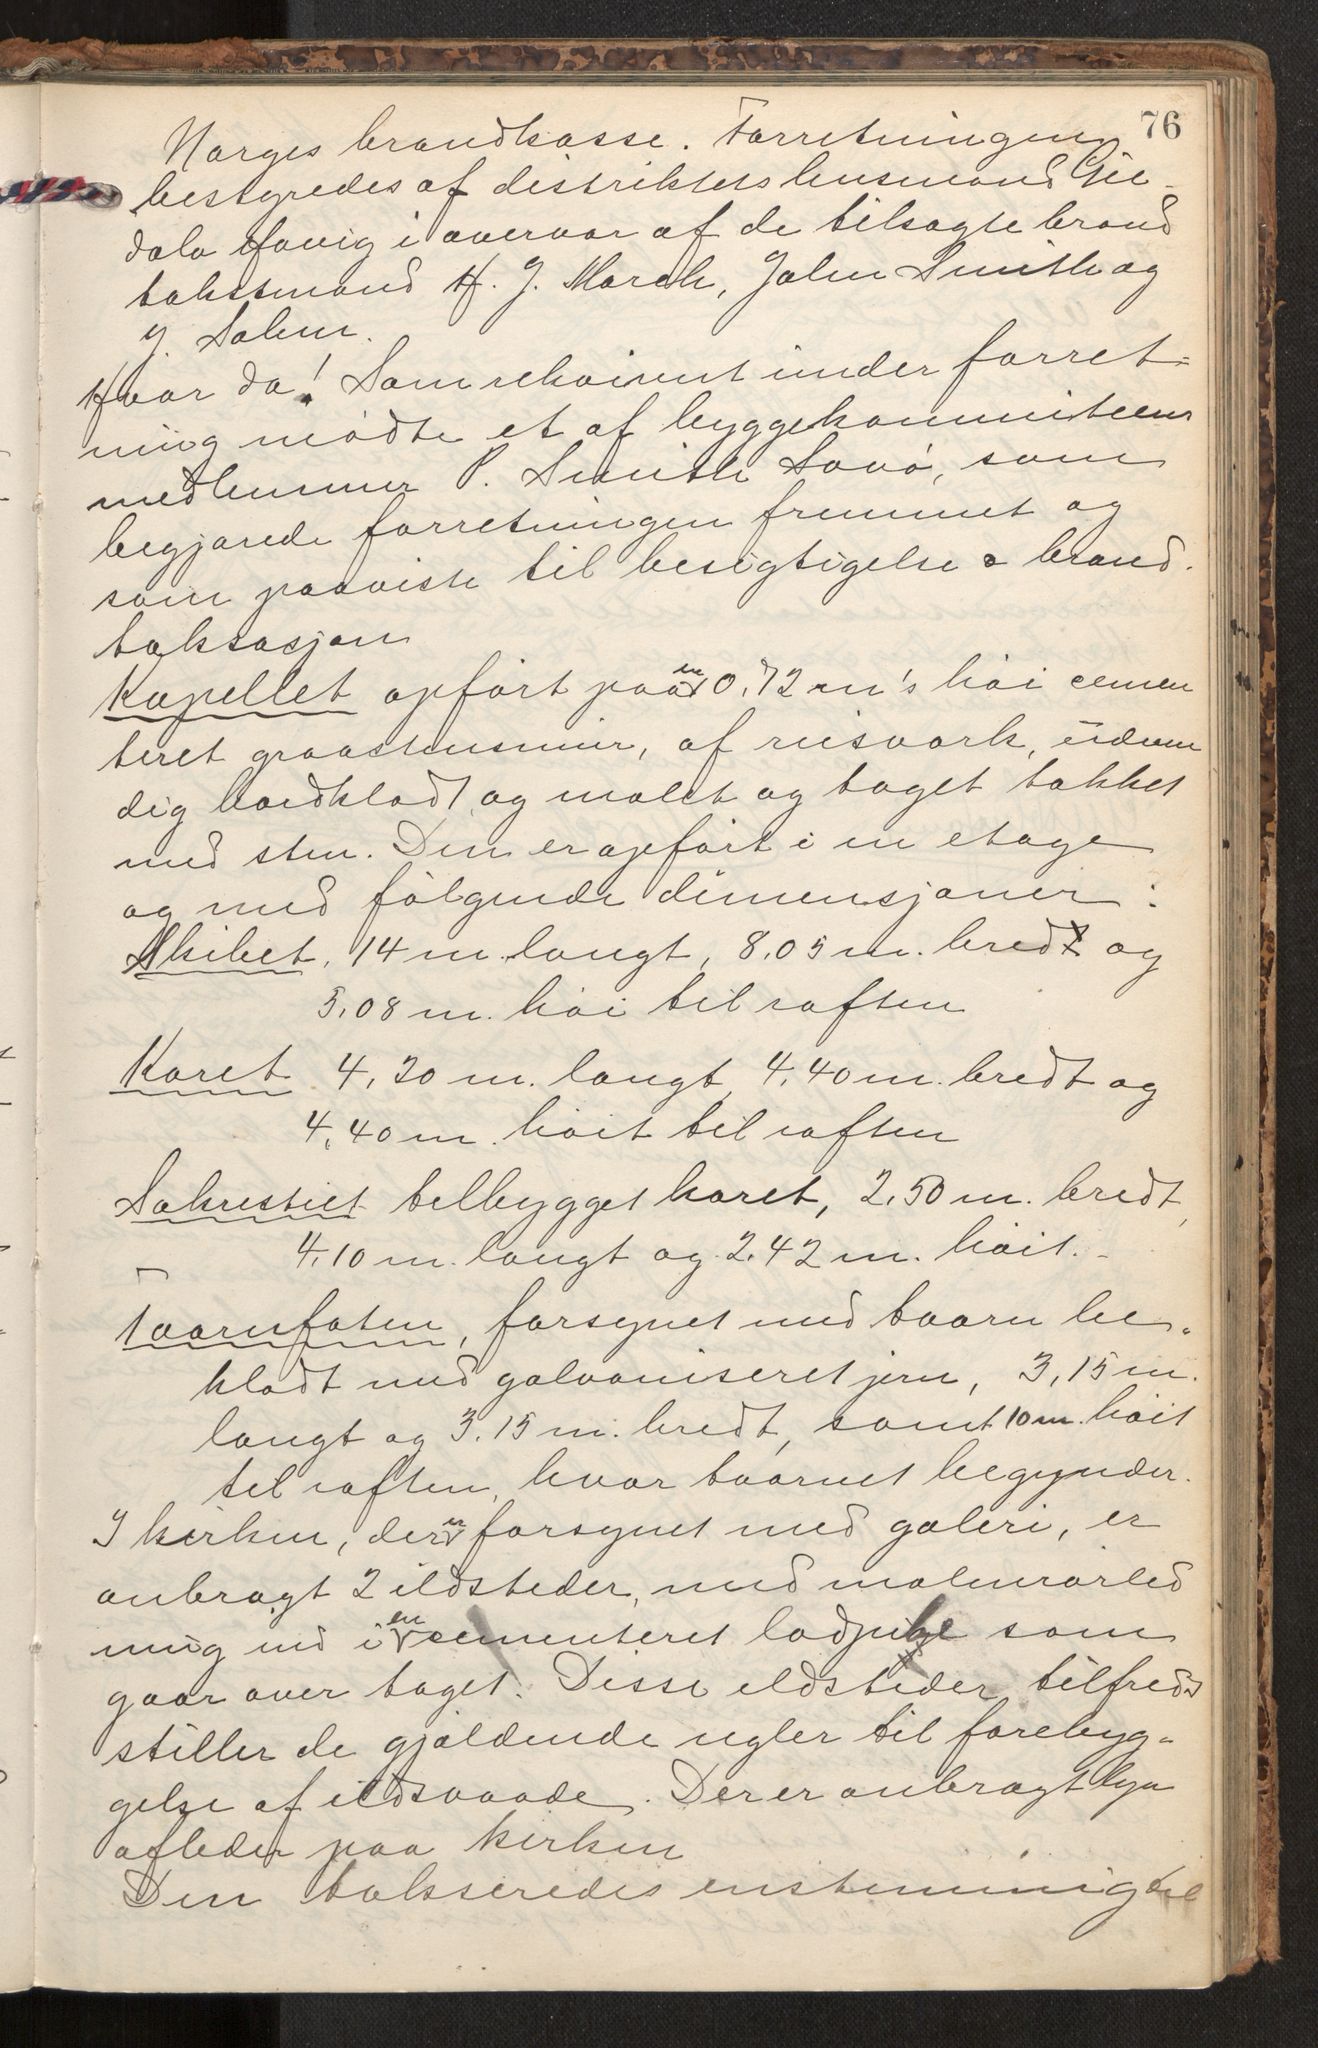 76
Norges brandkasse. Forretningen
bestyredes af distriktets lensmand
Havig i overvær af de tilsagte brand
takstmænd H. J. March, John Smith og
J. Salen.
Hvor da! Som rekvirent under forret=
ning mødte et af byggekommiteens
medlemmer P. Smith Savø, som
begjærede forretningen fremmet og
som paaviste til besigtigelse o brand-
taksasjon
Kapellet opført paa en 0,72 m's høi cemen
teret graastensmur, af reisværk, udven
dig bordklædt og malet og taget tækket
med sten. Den er opført i en etage
og med følgende dimensjoner:
Skibet, 14 m. langt, 8,05 m. bredt og
5,08 m. høi til raften
Koret 4,20 m. langt, 4,40 m. bredt og
4,40 m. høit til raften
Sakrestiet tilbygget koret, 2,50 m. bredt,
4,10 m. langt og 2,42 m. høit. -
Taarnfoten, forsynet med taarn be-
klædt med galvaniseret jern, 3,15 m.
langt og 3.15 m. bredt, samt 10 m. høit
til raften, hvor taarnet begynder.
I kirken, der er forsynet med galeri, er
anbragt 2 ildsteder, med malmrørled
ning ind i en cementeret lodpibe som
gaar over taget. Disse ildsteder tilfreds
stiller de gjældende regler til forebyg-
gelse af ildsvaade. Der er anbragt lyn
afleder paa kirken
Den takseredes enstemmig til